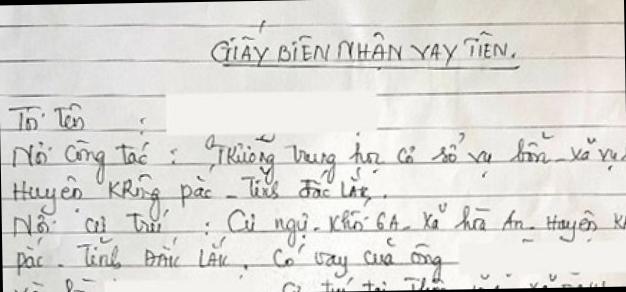 GIẤY BIÊN NHẬN VAY TIỀN.
Tôi Tên :
Nơi Công tác : Trường trung học cơ sở vụ bổn - xã vụ
Huyện KRông pắc - Tỉnh ĐắC LẮK.
Nơi cư trú : Cư ngụ - Khối 6A - Xã hòa An - Huyện K
pắc - Tỉnh ĐắC LẮK. Có vay của ông